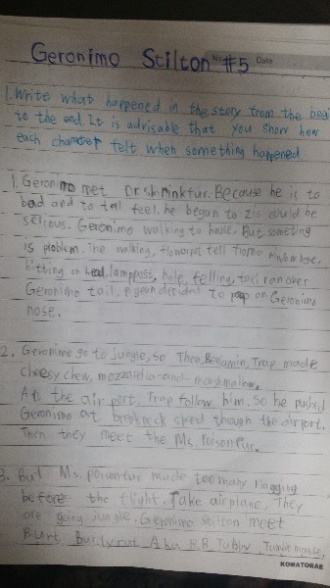 Geronimo Stilton #5
No. Date
1. Write what happened in the story from the
to the end. It is advisable that you show how
each character felt when something happened
1. Geronimo met Dr. shrinkfur. Because he is to
bad and to feel. he began to
serious. Geronimo walking to home. But someting
is problem. The walking,
hitting on head, lamppost, hole, felling, taxi ran over
Geronimo tail, to poop on Geronimo
nose.
2. Geronimo go to jungle, so Thea, Benjamin, Trap made
cheesy chew, mozzarella-and-marshmallow.
At the air port, Trap follow him. So he pushed
Geronimo at breakneck speed though the airport.
Then they meet the Ms. Poisonfur.
3. But Ms. poisonfur made too many nagging
before the flight. Take airplane, They
are going jungle. Geronimo stilton meet
Burt Burlyrat Aka B.B.
KOMATORAE